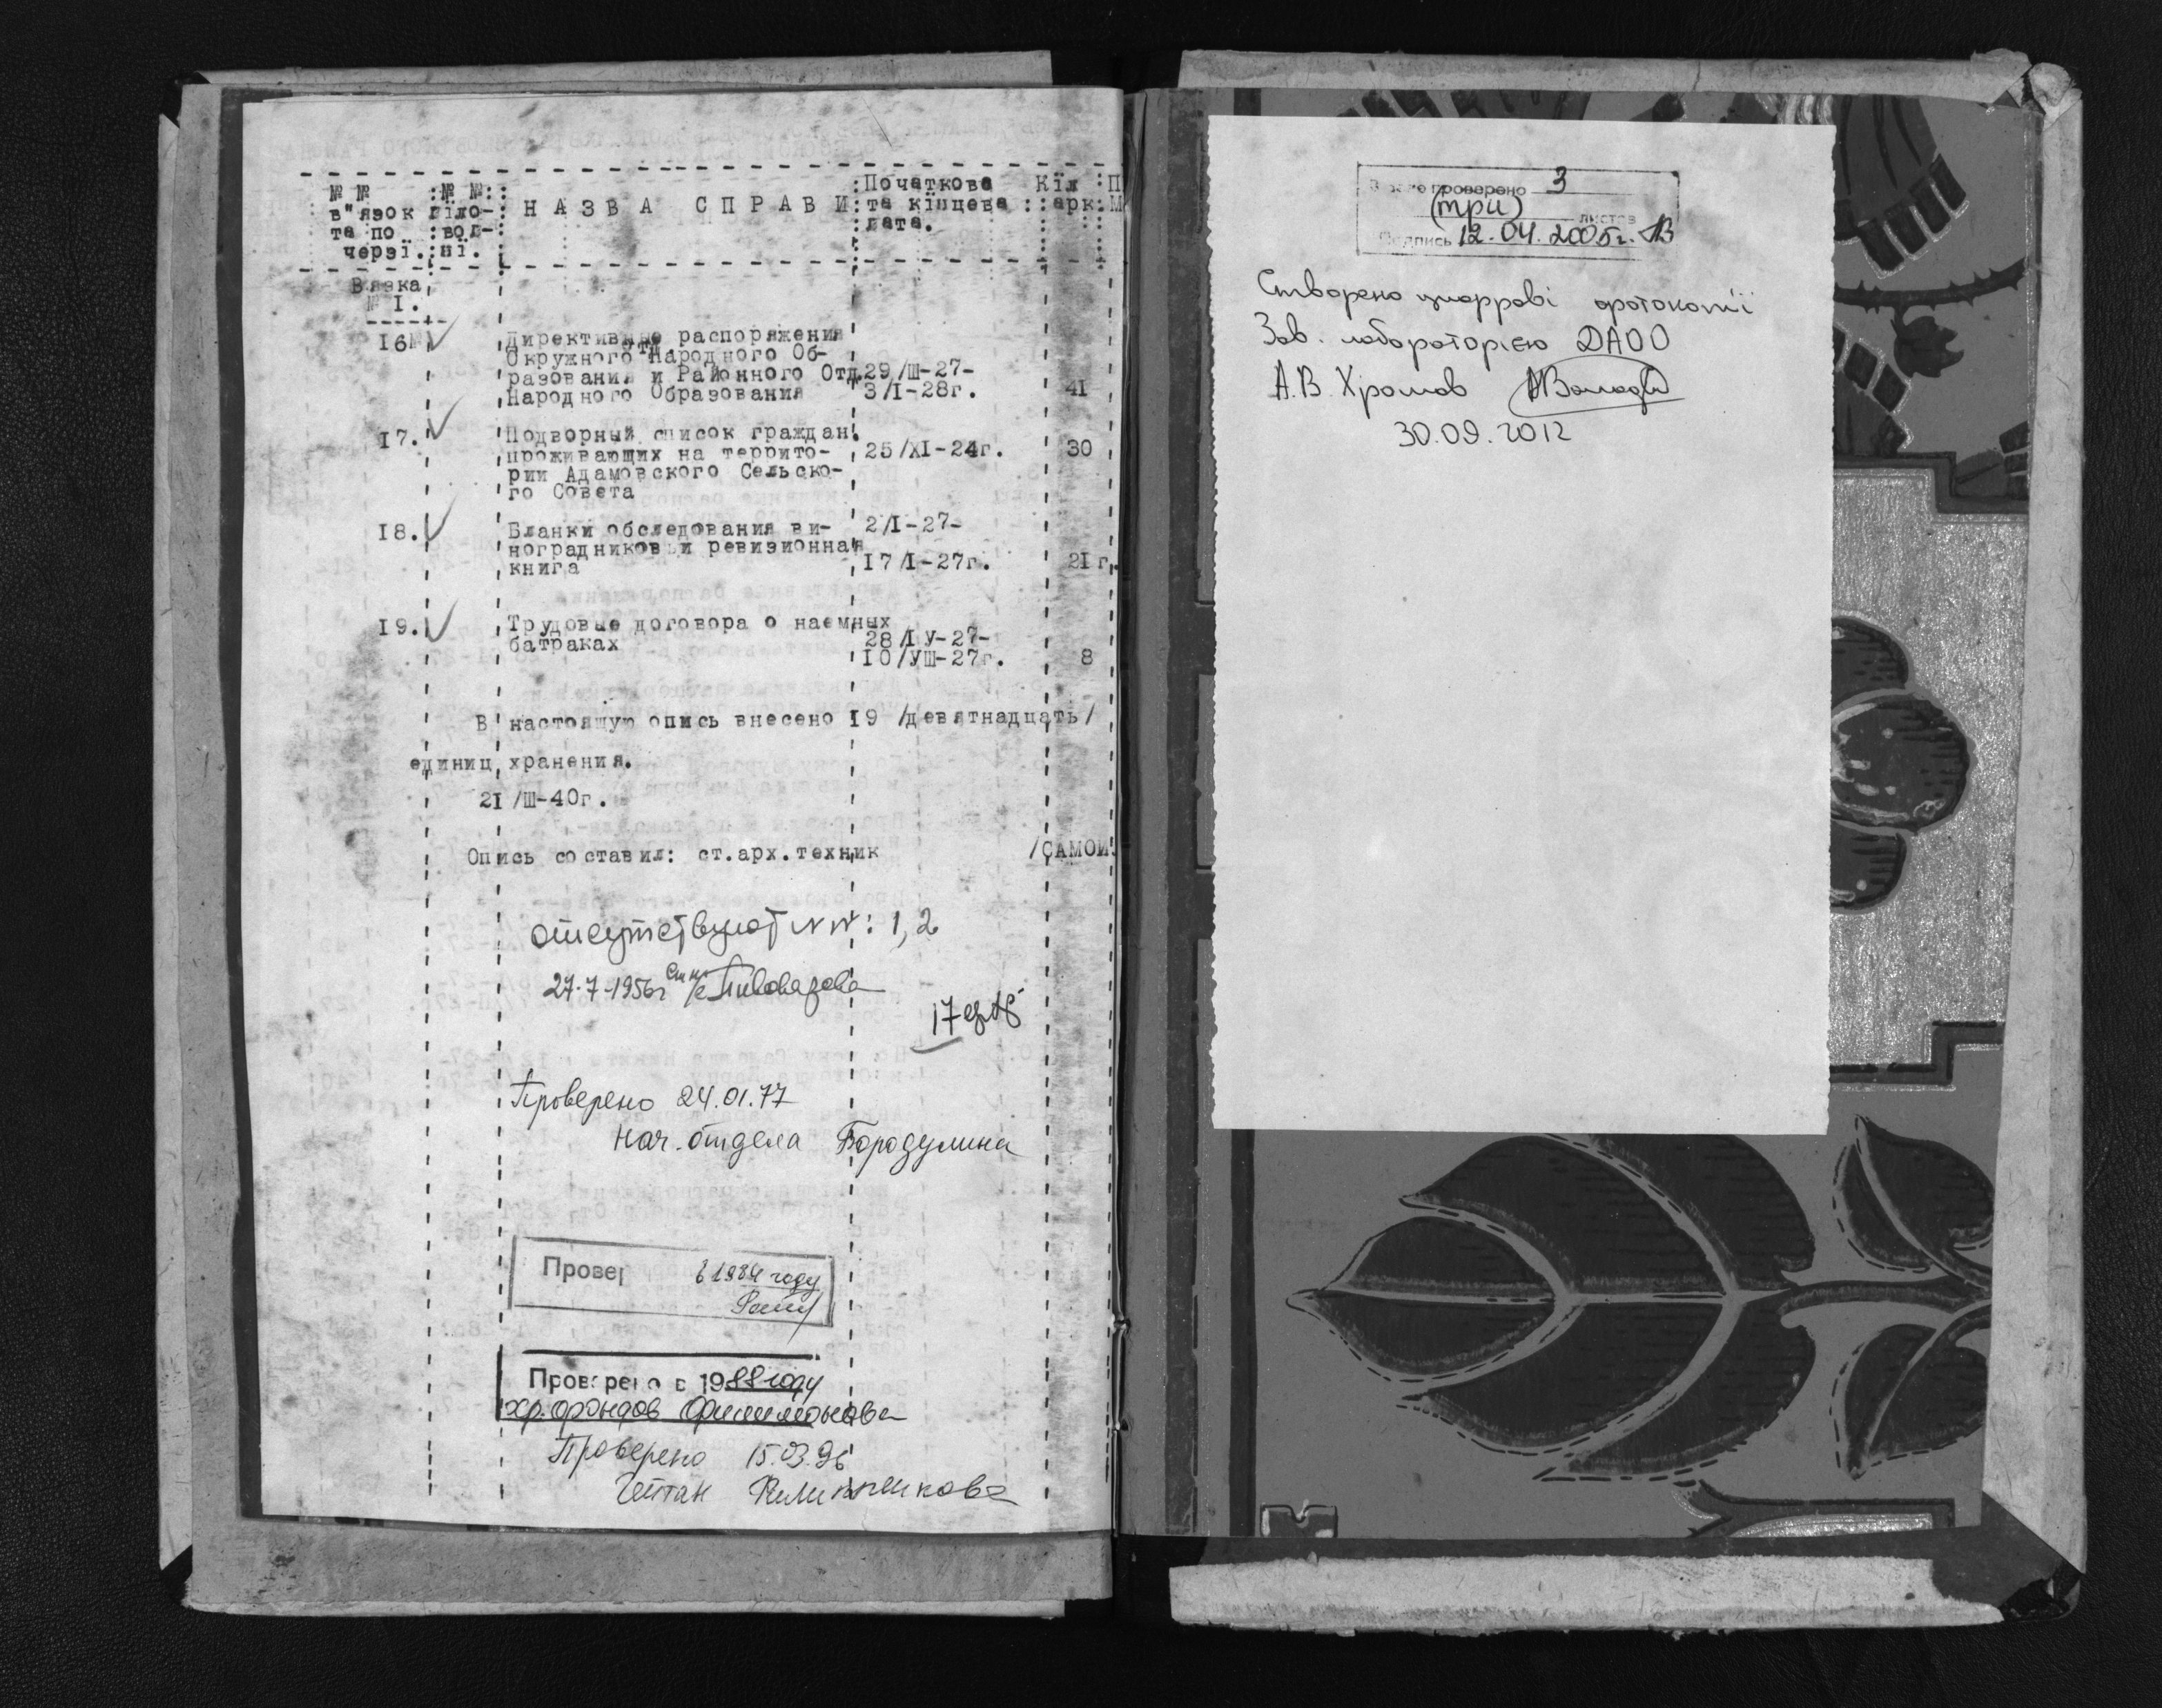 № № :№ №: Початкова Кїл П
в"язок :їло- НАЗВА СПРАВИ та кїнцева арк. М
та по :вод- дата.
черзї. нї.
Вязка
№ I.
I6 Директивные распоряжения
Окружного Отд. Народного Об-
разования и Районного Отд. 29/Ш-27-
Народного Образования 3/I-28г. 41
I7. Подворный список граждан
проживающих на террито- 25/XI-24г. 30
рии Адамовского Сельско-
го Совета
I8. Бланки обследования ви- 2/I-27-
ноградников и ревизионная
книга I7/I-27г. 21 г.
I9. Трудовые договора о наемных
батраках 28/IУ-27-
I0/УШ-27г. 8
В настоящую опись внесено I9 /девятнадцать/
единиц хранения.
21/Ш-40г.
Опись составил: ст.арх.техник /САМОЙ
отсутствуют NN: 1,2
27-7-1956г Ст н/с Пивоварова
17
Проверено 24.01.77
нач. отдела Бородулина
Провер в 1984 году
Проверено в 1988 году
хр. фондов Филимонова
Проверено 15.03.96
проверено 3
(три) листов
Подпись 12.04.2005г.
Створено цифрові фотокопії
Зав. лабораторією ДАОО
А.В. Хромов
30.09.2012